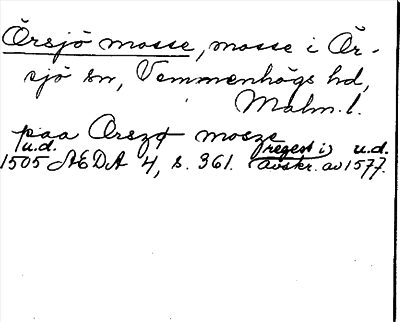 Örsjö mosse, mosse i Ör-
sjö sn, Vemmenhögs hd,
Malm. l.
paa Orszø mosze
u.d. (regest i) u.d.
1505 ÆDA 4, s. 361. avskr. av 1577.